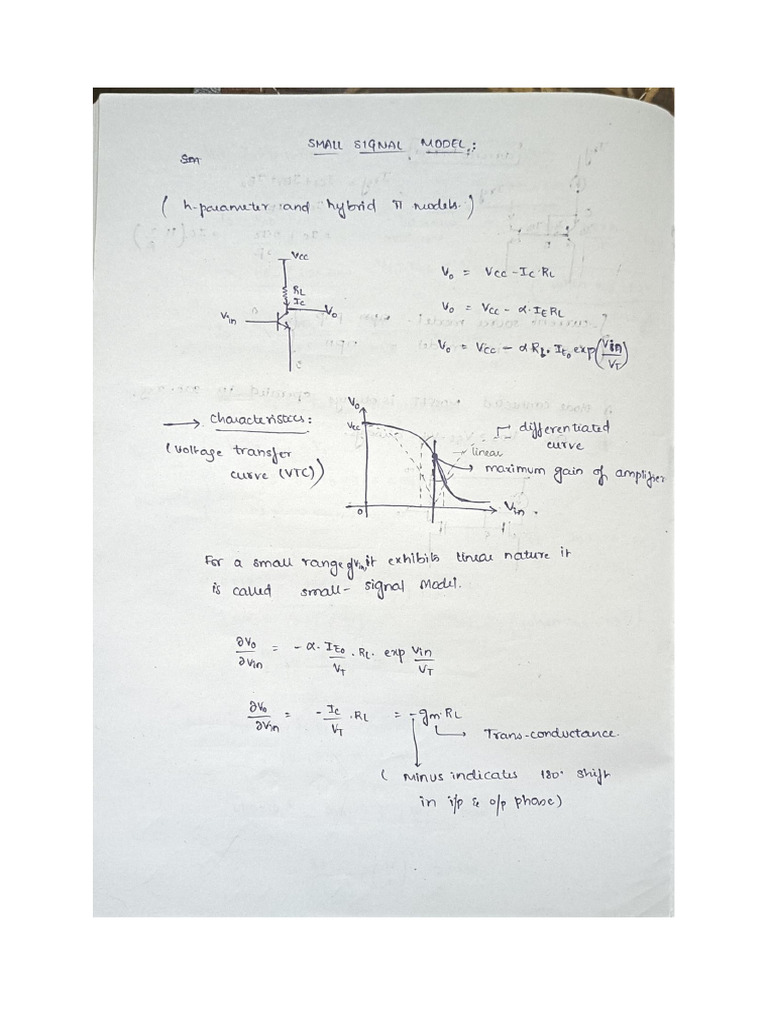 SMALL SIGNAL MODEL :
(h-parameter and hybrid π models.)
Vcc
RL
Ic
Vin
Vo
Vo = Vcc - Ic·RL
Vo = Vcc - α·IE RL
Vo = Vcc - α RL·IEo exp(Vin/VT)
→ Characteristics :
(Voltage transfer
curve (VTC))
Vo
Vcc
0
Vin
linear
differentiated
curve
maximum gain of amplifier
For a small range of Vin, it exhibits linear nature it
is called small-signal Model.
∂Vo/∂Vin = -α·IEo/VT · RL· exp Vin/VT
∂Vo/∂Vin = -Ic/VT · RL = -gm·RL
→ Trans-conductance.
( Minus indicates 180° shift
in i/p & o/p phase)